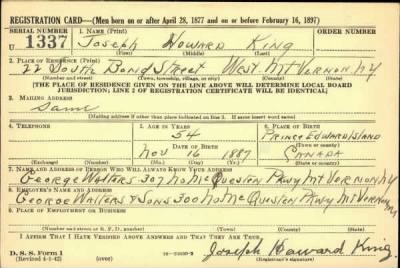 REGISTRATION CARD—(Men born on or after April 28, 1877 and on or before February 16, 1897)
SERIAL NUMBER 1. NAME (Print) ORDER NUMBER
U 1337 Joseph Howard King
(First) (Middle) (Last)
2. PLACE OF RESIDENCE (Print)
22 South Bond Street West Mt Vernon NY
(Number and street) (Town, township, village, or city) (County) (State)
[THE PLACE OF RESIDENCE GIVEN ON THE LINE ABOVE WILL DETERMINE LOCAL BOARD
JURISDICTION; LINE 2 OF REGISTRATION CERTIFICATE WILL BE IDENTICAL]
3. MAILING ADDRESS
Same
[Mailing address if other than place indicated on line 2. If same insert word same]
4. TELEPHONE 5. AGE IN YEARS 6. PLACE OF BIRTH
54 Prince Edward Island
DATE OF BIRTH (Town or county)
Nov 16 1887 Canada
(Exchange) (Number) (Mo.) (Day) (Yr.) (State or country)
7. NAME AND ADDRESS OF PERSON WHO WILL ALWAYS KNOW YOUR ADDRESS
George Walters 307 No McQuesten Pkwy Mt Vernon NY
8. EMPLOYER'S NAME AND ADDRESS
George Walters & Sons 300 No McQuesten Pkwy Mt Vernon NY
9. PLACE OF EMPLOYMENT OR BUSINESS
(Number and street or R. F. D. number) (Town) (County) (State)
I AFFIRM THAT I HAVE VERIFIED ABOVE ANSWERS AND THAT THEY ARE TRUE.
D. S. S. Form 1
(Revised 4-1-42) (over) Joseph Howard King
(Registrant's signature)